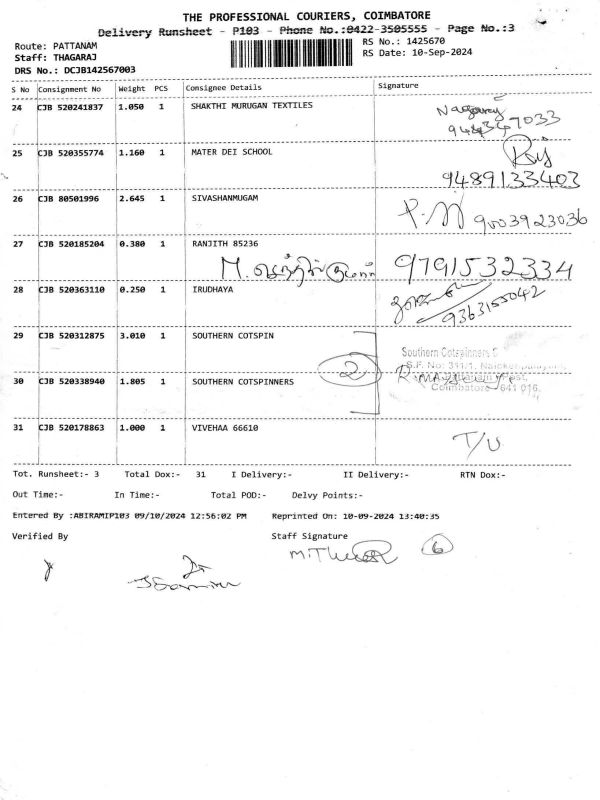 THE PROFESSIONAL COURIERS, COIMBATORE
Delivery Runsheet - P103 - Phone No.:0422-3505555 - Page No.:3
Route: PATTANAM
RS No.: 1425670
Staff: THAGARAJ
RS Date: 10-Sep-2024
DRS No.: DCJB142567003
S No Consignment No Weight PCS Consignee Details Signature
24 CJB 520241837 1.050 1 SHAKTHI MURUGAN TEXTILES
25 CJB 520355774 1.160 1 MATER DEI SCHOOL
9489133403
26 CJB 80501996 2.645 1 SIVASHANMUGAM
9003923036
27 CJB 520185204 0.380 1 RANJITH 85236
9791532334
28 CJB 520363110 0.250 1 IRUDHAYA
9363155042
29 CJB 520312875 3.010 1 SOUTHERN COTSPIN
2
Southern Cotspinners
30 CJB 520338940 1.805 1 SOUTHERN COTSPINNERS
Coimbatore - 641 016.
31 CJB 520178863 1.000 1 VIVEHAA 66610
T/U
Tot. Runsheet:- 3 Total Dox:- 31 I Delivery:- II Delivery:- RTN Dox:-
Out Time:- In Time:- Total POD:- Delvy Points:-
Entered By :ABIRAMIP103 09/10/2024 12:56:02 PM Reprinted On: 10-09-2024 13:40:35
Verified By Staff Signature
6